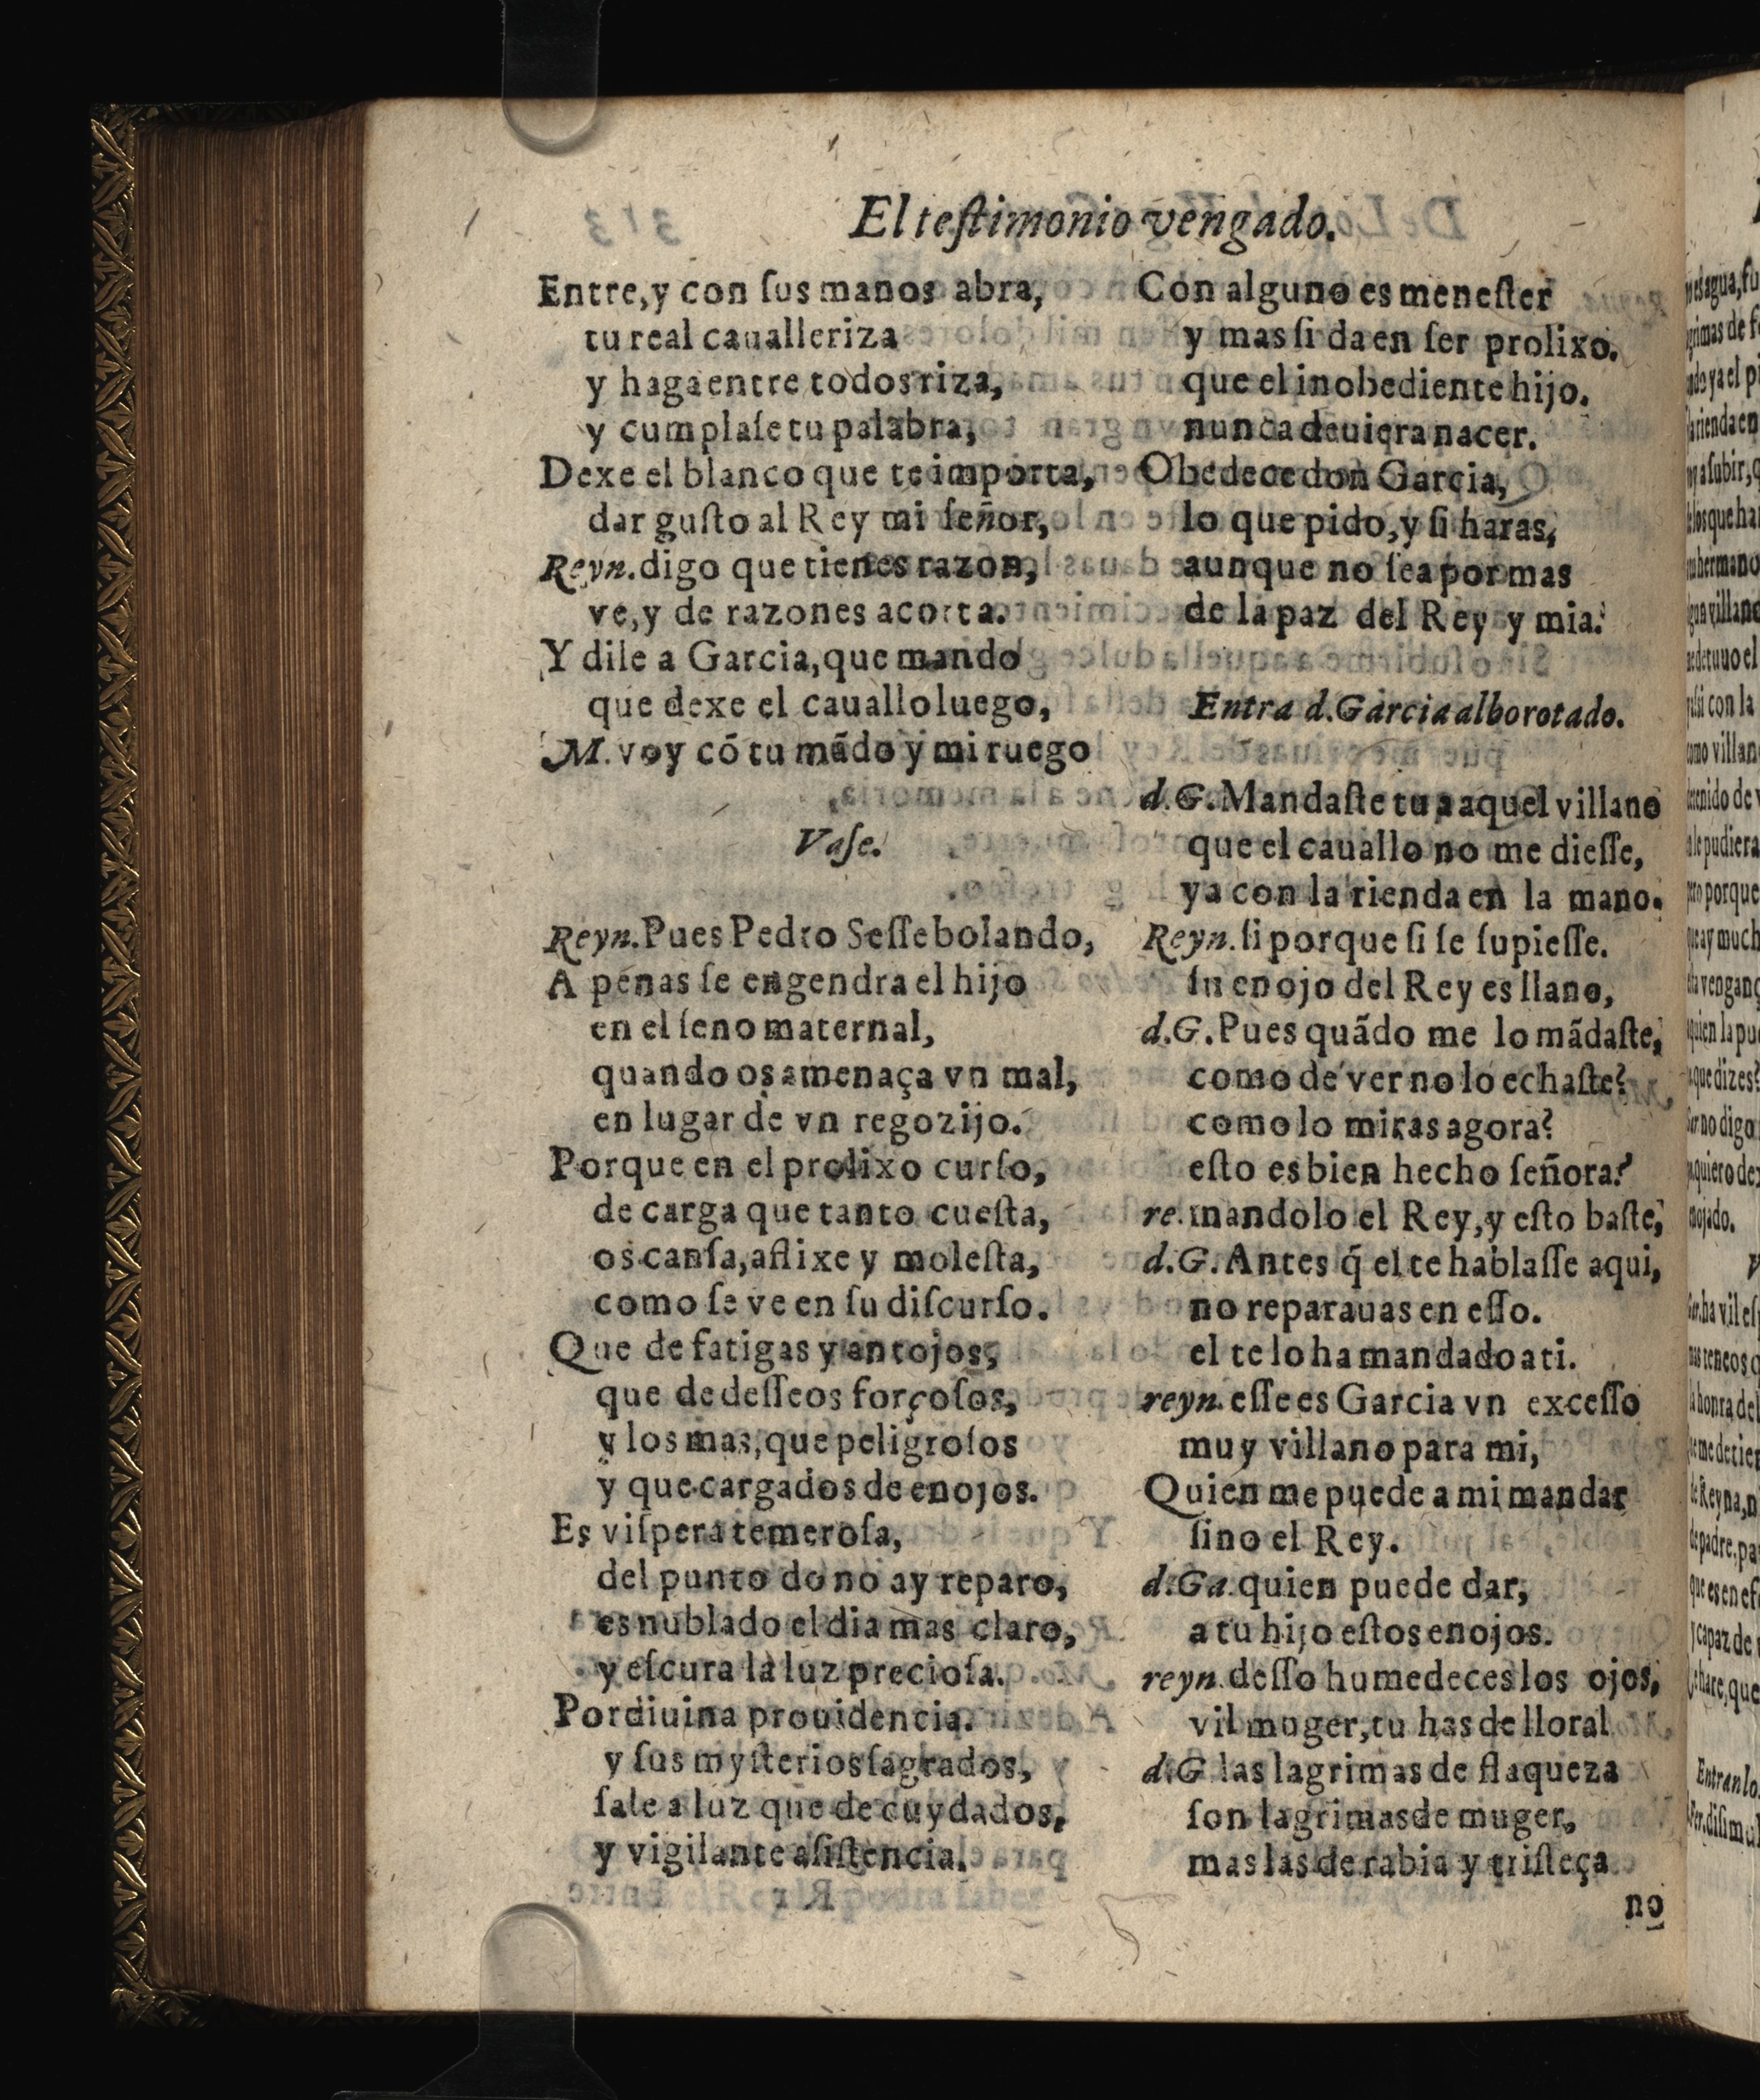 El teſtimonio vengado.
Entre, y con ſus manos abra,
tu real caualleriza
y haga entre todos riza,
y cumplaſe tu palabra,
Dexe el blanco que te importa,
dar guſto al Rey mi ſeñor,
Reyn. digo que tienes razon,
ve, y de razones acorta.
Y dile a Garcia, que mando
que dexe el cauallo luego,
M. voy có tu mãdo y mi ruego
Vaſe.
Reyn. Pues Pedro Seſſe bolando,
A penas ſe engendra el hijo
en el ſeno maternal,
quando os amenaça vn mal,
en lugar de vn regozijo.
Porque en el prolixo curſo,
de carga que tanto cueſta,
os canſa, aflixe y moleſta,
como ſe ve en ſu diſcurſo.
Que de fatigas y antojos,
que de deſſeos forçoſos,
y los mas, que peligroſos
y que cargados de enojos.
Es viſpera temeroſa,
del punto do no ay reparo,
es nublado el dia mas claro,
y eſcura la luz precioſa.
Por diuina prouidencia.
y ſus myſterios ſagrados,
ſale a luz que de cuydados,
y vigilante aſiſtencia.
Con alguno es meneſter
y mas ſi da en ſer prolixo.
que el inobediente hijo.
nunca deuiera nacer.
Obedece don Garcia,
lo que pido, y ſi haras,
aunque no ſea por mas
de la paz del Rey y mia.
Entra d. Garcia alborotado.
d.G. Mandaſte tu a aquel villano
que el cauallo no me dieſſe,
ya con la rienda en la mano.
Reyn. ſi porque ſi ſe ſupieſſe.
ſu enojo del Rey es llano,
d.G. Pues quãdo me lo mãdaſte,
como de ver no lo echaſte?
como lo miras agora?
eſto es bien hecho ſeñora?
re. mandolo el Rey, y eſto baſte,
d.G. Antes q̃ el te hablaſſe aqui,
no reparauas en eſſo.
el te lo ha mandado a ti.
reyn. eſſe es Garcia vn exceſſo
muy villano para mi,
Quien me puede a mi mandar
ſino el Rey.
d.Ga. quien puede dar,
a tu hijo eſtos enojos.
reyn. deſſo humedeces los ojos,
vil muger, tu has de lloral
d.G las lagrimas de flaqueza
ſon lagrimas de muger,
mas las de rabia y triſteça
no